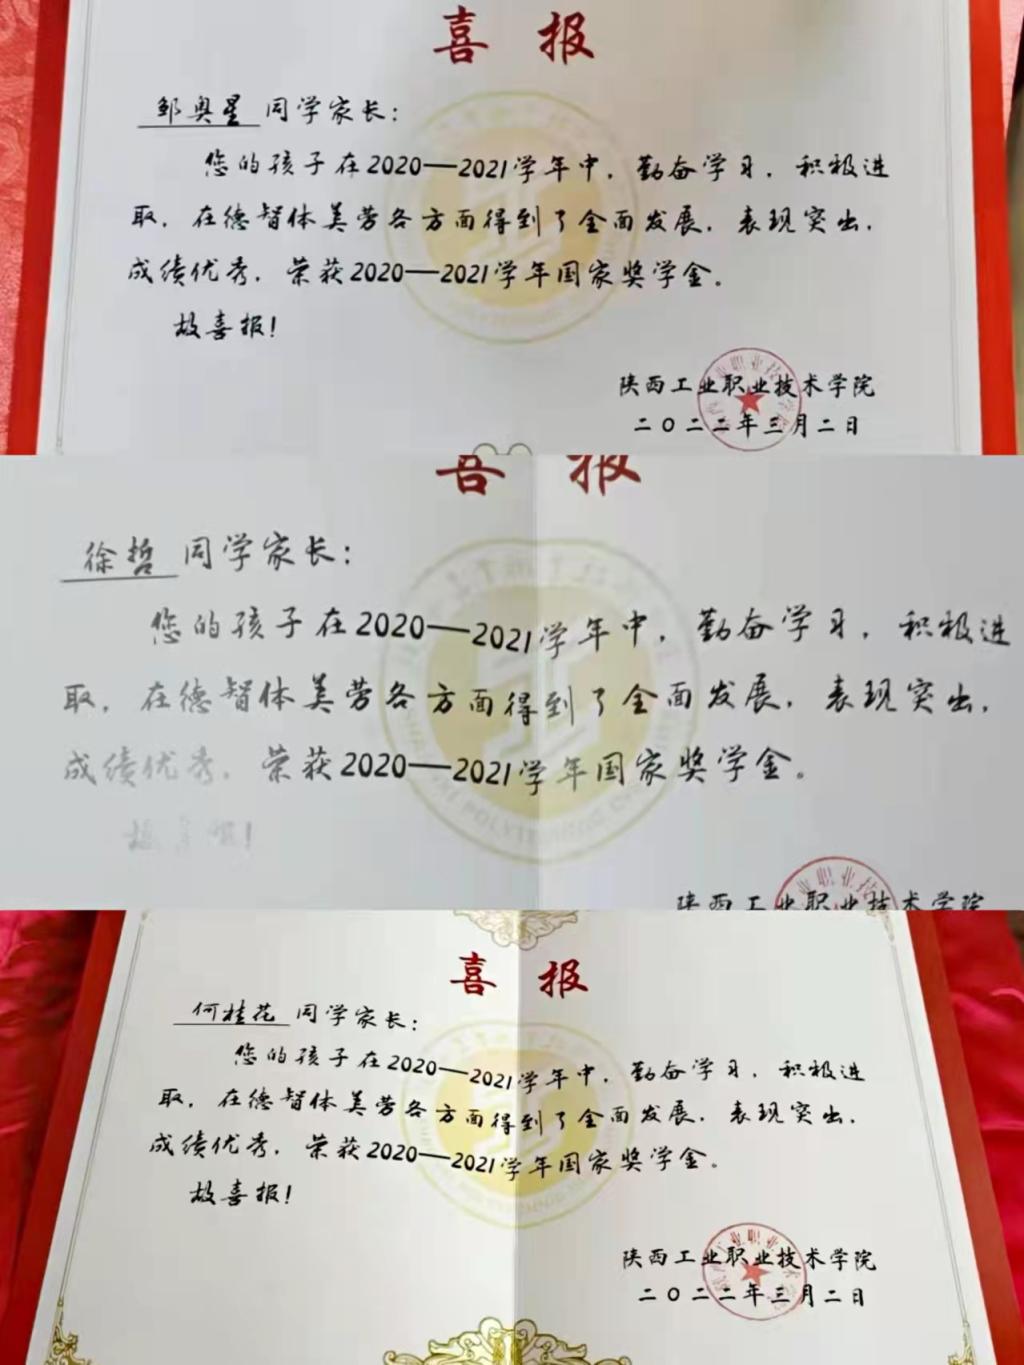 喜报
邹奥星 同学家长：
您的孩子在2020—2021学年中，勤奋学习，积极进
取，在德智体美劳各方面得到了全面发展，表现突出，
成绩优秀，荣获2020—2021学年国家奖学金。
故喜报！
陕西工业职业技术学院
二〇二二年三月二日
喜报
徐哲 同学家长：
您的孩子在2020—2021学年中，勤奋学习，积极进
取，在德智体美劳各方面得到了全面发展，表现突出，
成绩优秀，荣获2020—2021学年国家奖学金。
故喜报！
陕西工业职业技术学院
喜报
何桂花 同学家长：
您的孩子在2020—2021学年中，勤奋学习，积极进
取，在德智体美劳各方面得到了全面发展，表现突出，
成绩优秀，荣获2020—2021学年国家奖学金。
故喜报！
陕西工业职业技术学院
二〇二二年三月二日